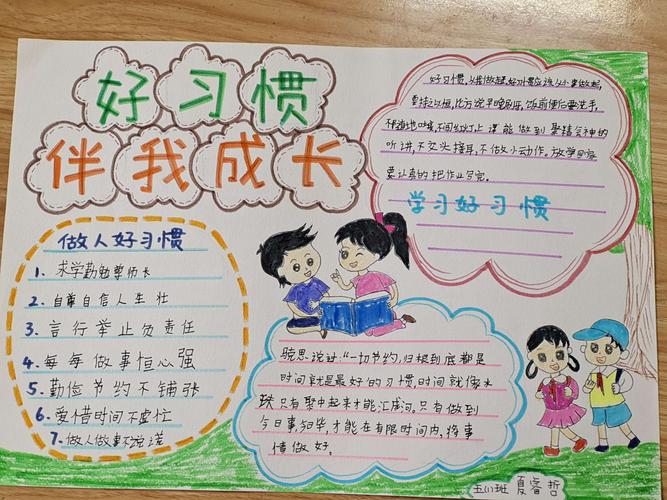 好习惯
伴我成长
做人好习惯
1、求学勤勉尊师长
2、自尊自信人生壮
3、言行举止负责任
4、每每做事恒心强
5、勤俭节约不铺张
6、爱惜时间不虚忙
7、做人做事不
好习惯,从我做起,好习惯应该从小事做起,
早晚刷牙,饭前便后要洗手,
不随地吐痰,不闯红灯,上课能做到聚精会神的
听讲,不交头接耳,不做小动作。放学回家
要认真的把作业写完。
学习好习惯
说过:“一切节约,归根到底都是
时间就是最好的习惯,时间就像水
只有聚中起来才能汇成河。只有做到
今日事,今日毕,才能在有限时间内,将事
情做好。
五(1)班 夏睿哲